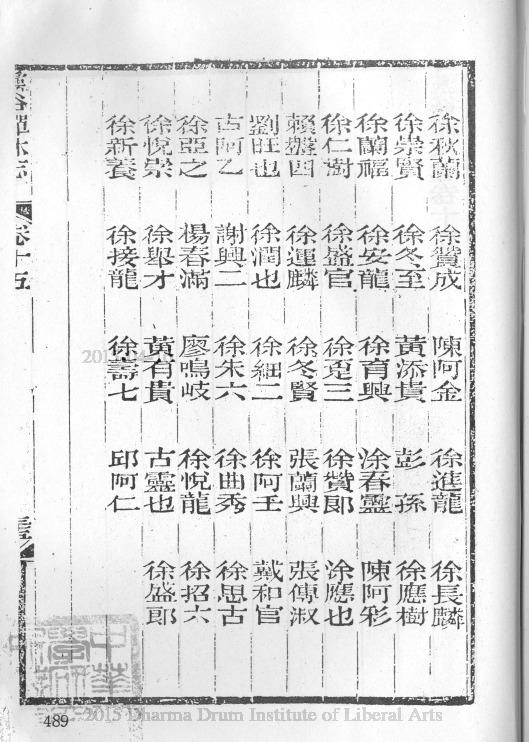 徐秋蘭 徐贊成 陳阿金 徐進龍 徐長麟
徐崇賢 徐冬至 黃添貴 彭孫 徐應樹
徐蘭福 徐安龍 徐育興 涂春靈 陳阿彩
徐仁澍 徐盛官 徐躉三 徐贊郎 涂應也
賴盤四 徐運麟 徐冬賢 張蘭興 張傳淑
劉旺也 徐潤也 徐細二 徐阿壬 戴和官
古阿乙 謝興二 徐朱六 徐曲秀 徐思古
徐亞之 楊春滿 廖鳴岐 徐悅龍 徐招六
徐悅崇 徐舉才 黃有貴 古靈也 徐盛郎
徐新養 徐接龍 徐壽七 邱阿仁
谷禪林志 卷十五
489
2015 Dharma Drum Institute of Liberal Arts